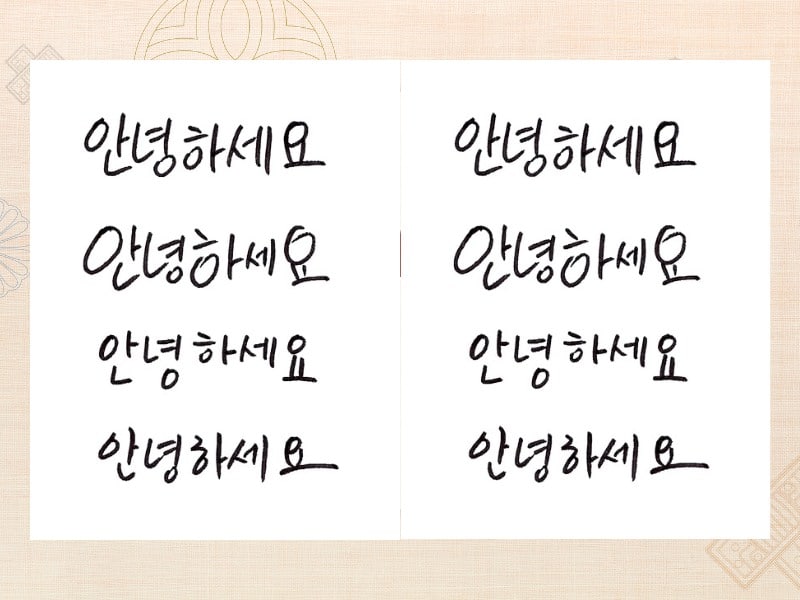 안녕하세요 안녕하세요
안녕하세요 안녕하세요
안녕하세요 안녕하세요
안녕하세요 안녕하세요